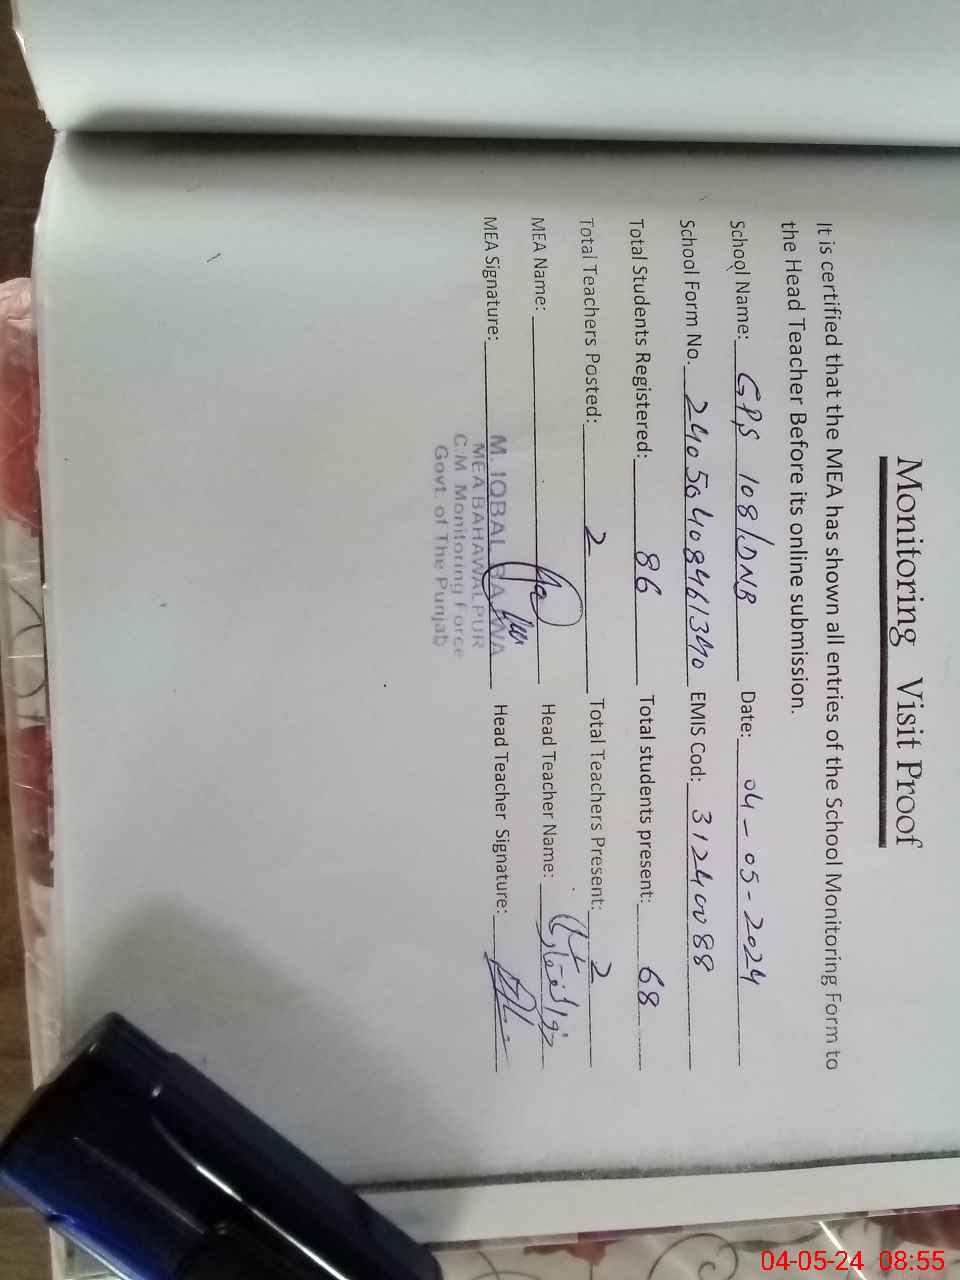 Monitoring Visit Proof
It is certified that the MEA has shown all entries of the School Monitoring Form to
the Head Teacher Before its online submission.
School Name: GPS 108/DNB Date: 04-05-2024
School Form No. 24050408461340 EMIS Cod: 31240088
Total Students Registered: 86 Total students present: 68
Total Teachers Posted: 2 Total Teachers Present: 2
MEA Name: Head Teacher Name: ذوالفقار
MEA Signature: Head Teacher Signature:
M. IQBAL BAJWA
MEA BAHAWALPUR
C.M Monitoring Force
Govt. of The Punjab
04-05-24 08:55